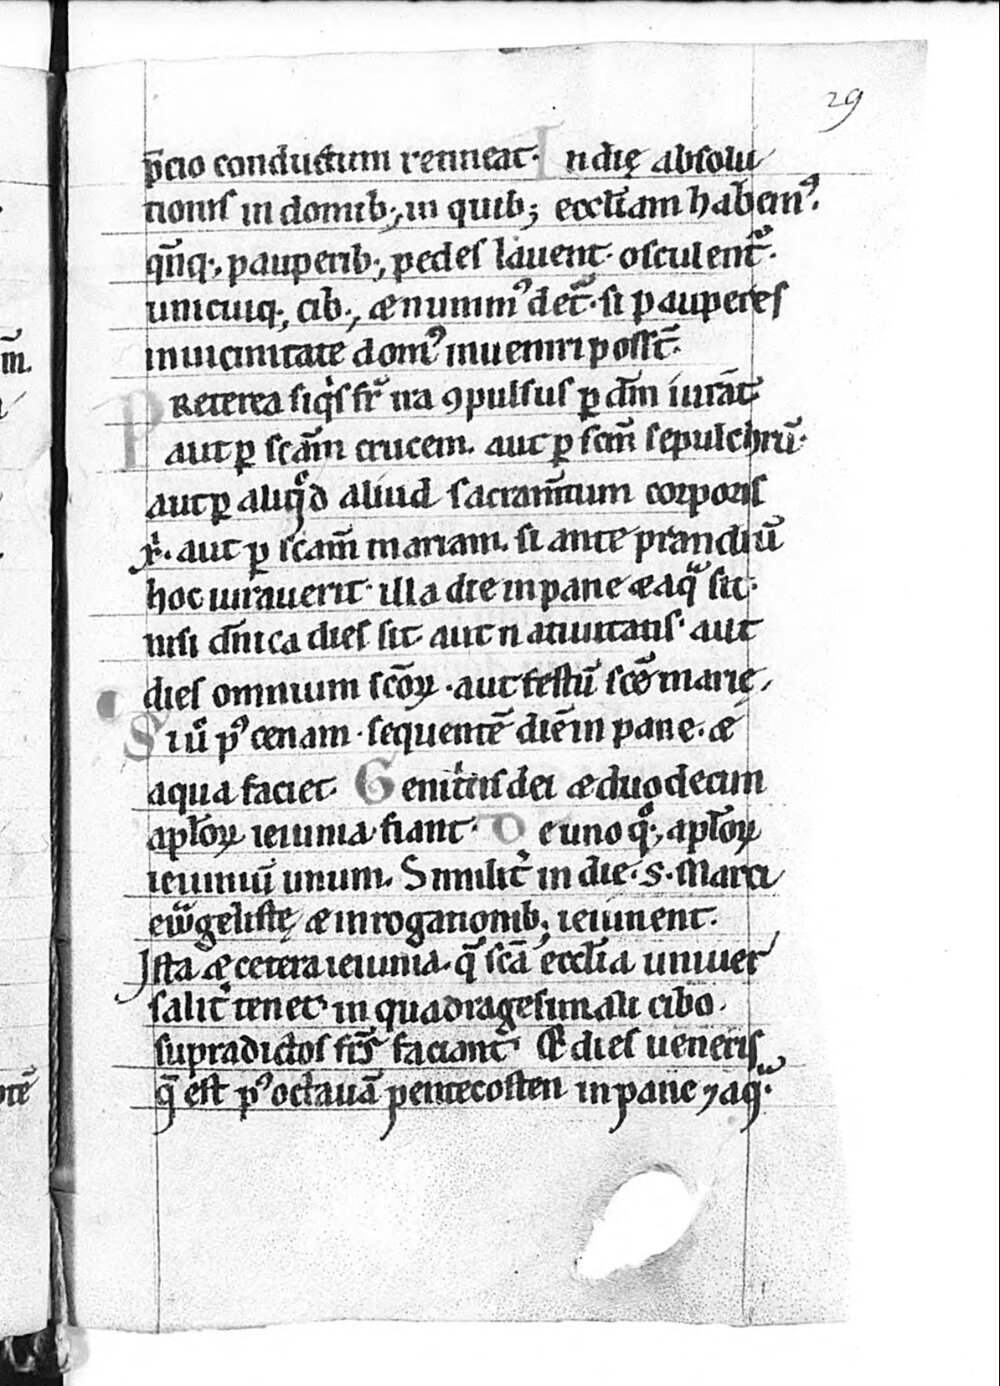 29
p̄cio conductum retineat. In dię absolu
tionis in domib;, in quib; eccl̄iam habem᷒.
qn̄q;, pauperib;, pedes lauent. osculent᷑.
unicuiq;, cib;, & numm᷒ det᷑. si pauperes
in uicinitate dom᷒ inueniri poss̄t.
PReterea siqͥs fr̄ nr̄a ꝯpulsus ꝑ dm̄ iurāt
aut ꝑ scām crucem. aut ꝑ scm̄ sepulchrū.
aut ꝑ aliqͦd aliud sacram̄tum corporis
xͥ. aut ꝑ scām mariam. si ante prandiū
hoc iurauerit. illa die in pane & aqͣ sit.
nisi dn̄ica dies sit aut natiuitatis. aut
dies omnium scōꝝ. aut festū scē marię,
Siū p᷒ cenam. sequentē diē in pane. &
aqua faciet. Genitͥcis dei & duodecim
apl̄oꝝ ieiunia fiant. De unoqͦq;, apl̄oꝝ
ieiuniū unum. Similit᷑ in die. S. Marci
eūu̅gelistę & in rogationib; ieiunent.
Ista & cetera ieiunia. qͣ scā eccl̄ia uniuer
salit᷑ tenet in quadragesimali cibo.
supradictos frs̄ faciant. & dies ueneris
q̄ est p᷒ octauā pentecosten in pane ⁊ aqͣ.